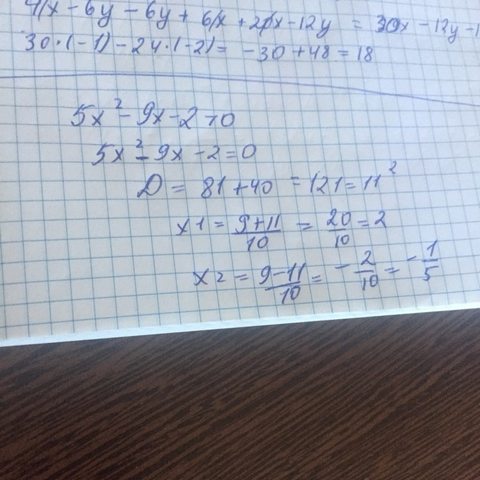 4x - 6y - 6y + 6x + 20x - 12y = 30x - 12y - 1
30·(-1) - 24·(-2) = -30 + 48 = 18
5x² - 9x - 2 > 0
5x² - 9x - 2 = 0
D = 81 + 40 = 121 = 11²
x1 = 9+11/10 = 20/10 = 2
x2 = 9-11/10 = -2/10 = -1/5